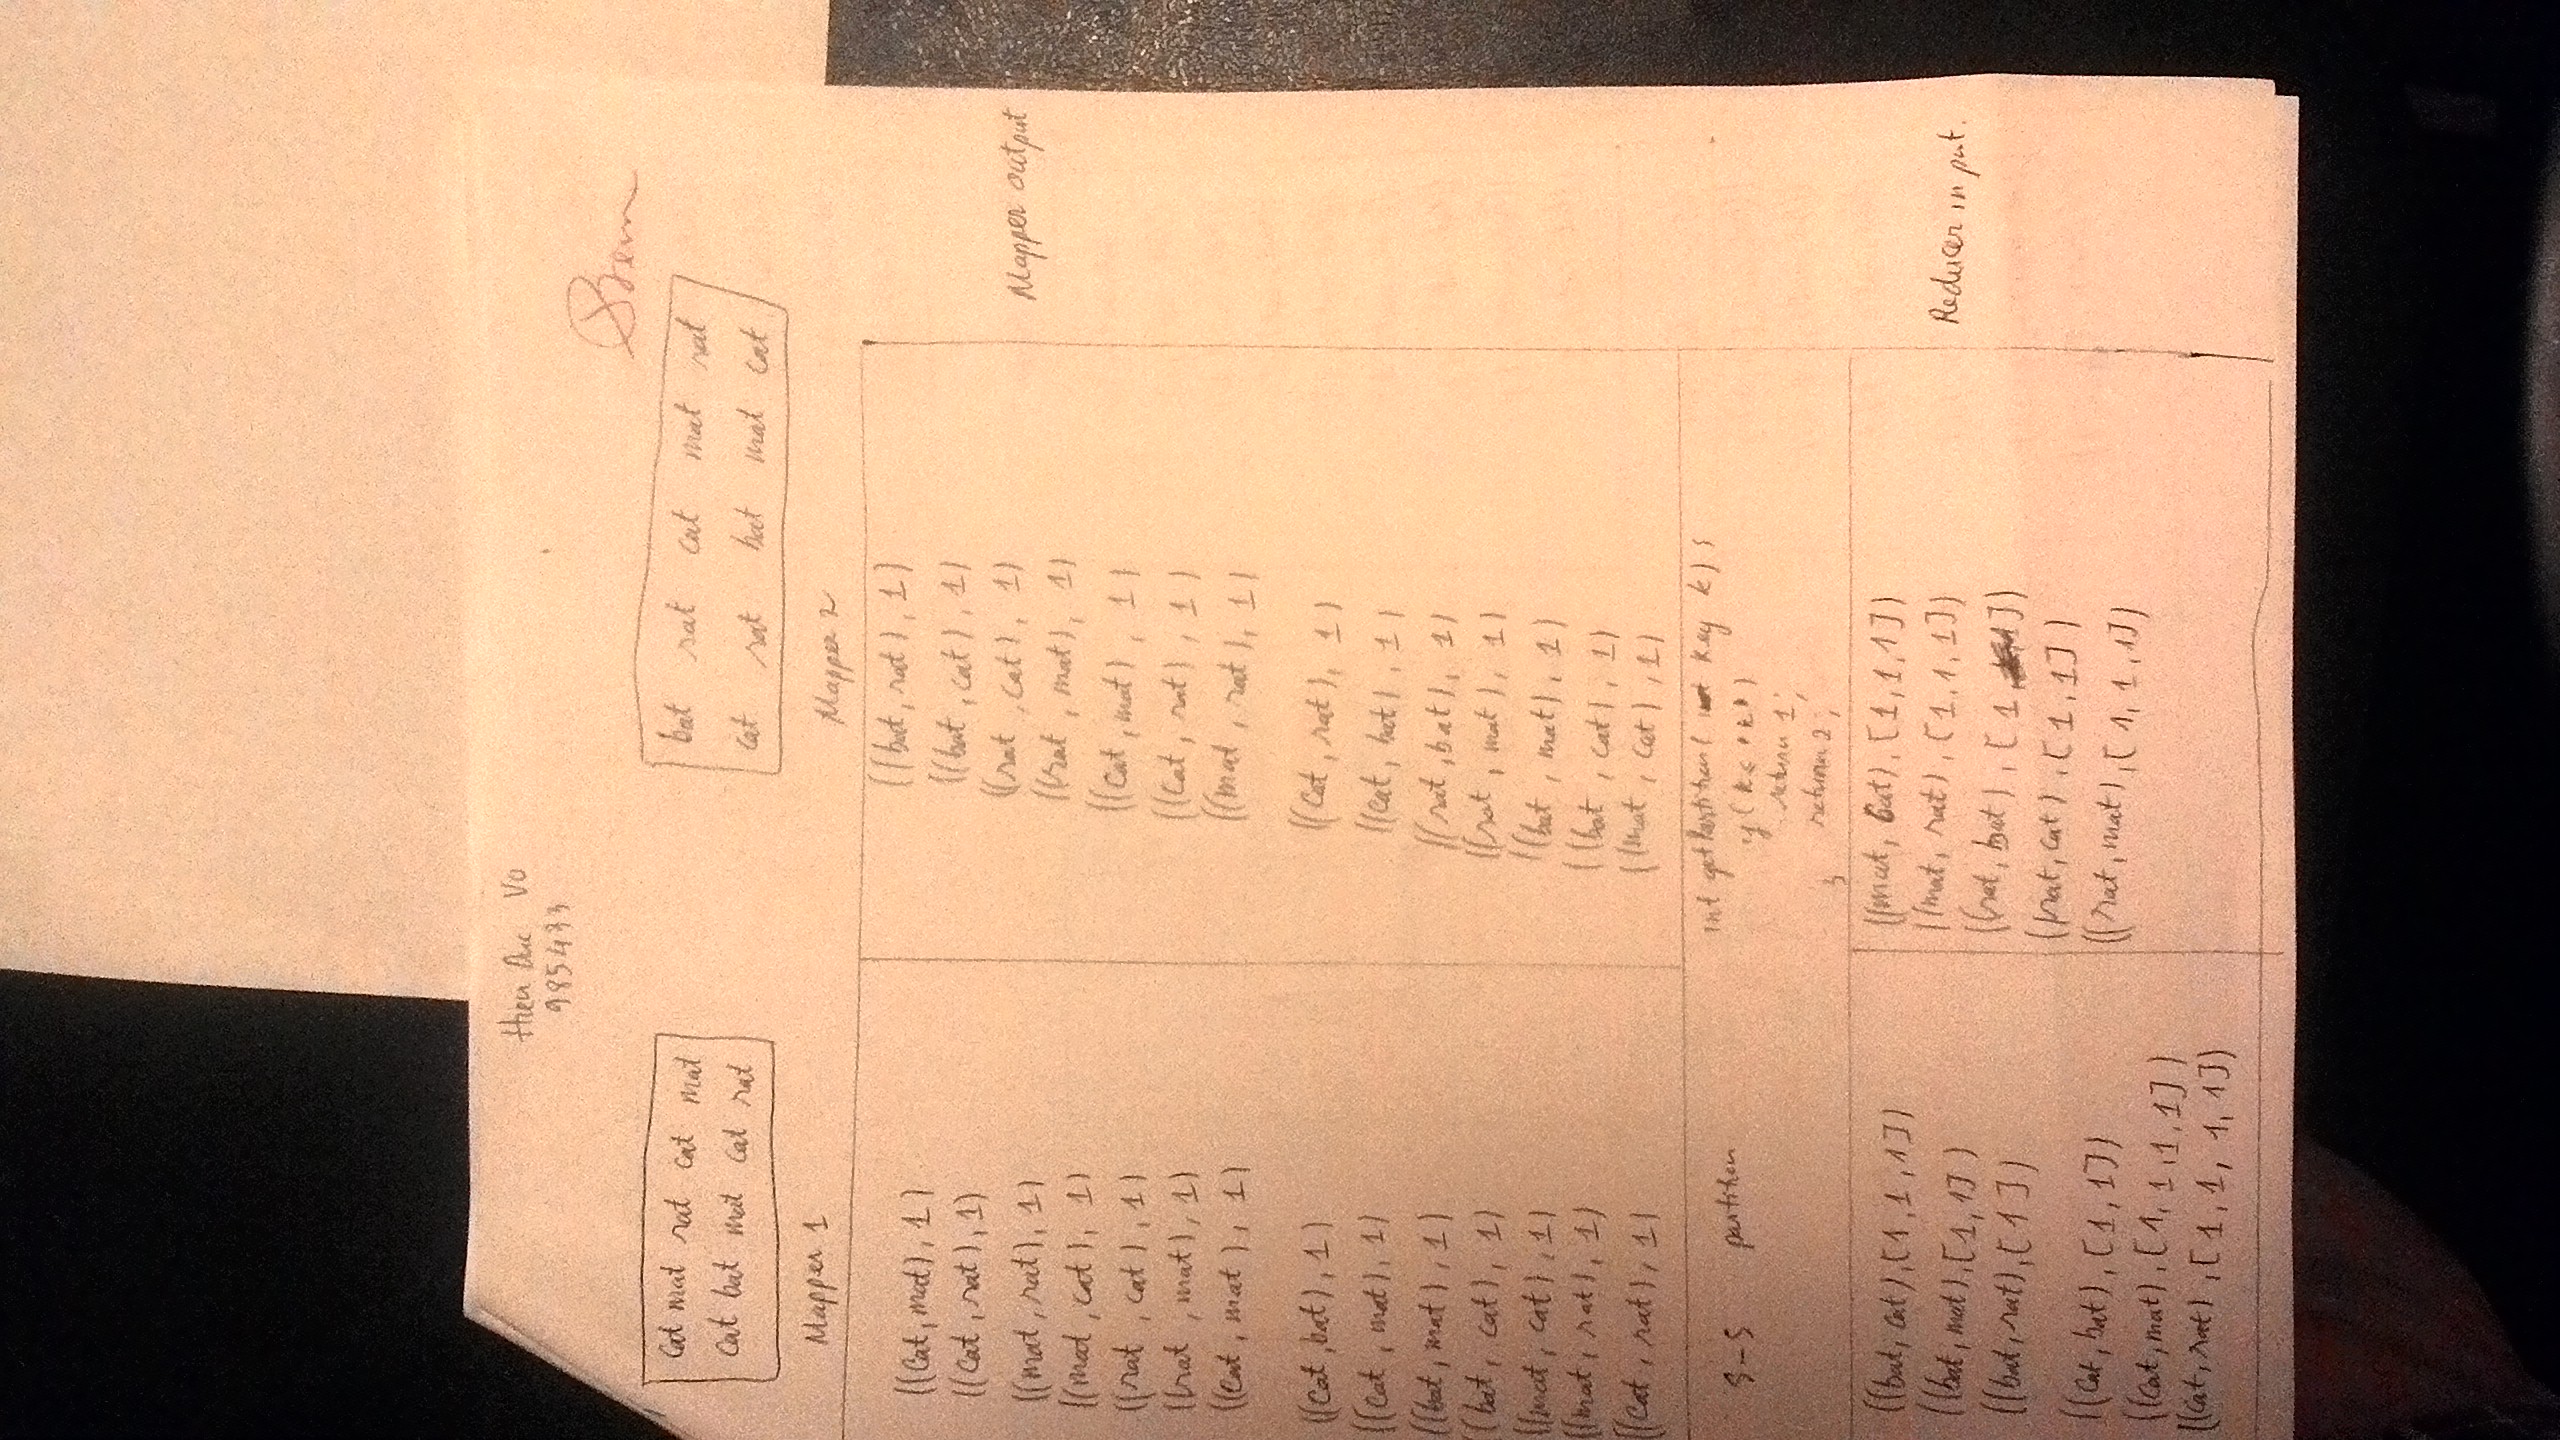 Hien Duc Vo
985433
Cat mat rat cat mat
Cat bat mat cat rat
Mapper 1
bat rat cat mat rat
cat rat bat mat cat
Mapper 2
((Cat, mat), 1)
((Cat, rat), 1)
((mat, rat), 1)
((mat, cat), 1)
((rat, cat), 1)
((rat, mat), 1)
((Cat, mat), 1)
((Cat, bat), 1)
((Cat, mat), 1)
((bat, mat), 1)
((bat, cat), 1)
((mat, cat), 1)
((mat, rat), 1)
((Cat, rat), 1)
((bat, rat), 1)
((bat, cat), 1)
((rat, cat), 1)
((rat, mat), 1)
((Cat, mat), 1)
((Cat, rat), 1)
((mat, rat), 1)
((Cat, rat), 1)
((Cat, bat), 1)
((rat, bat), 1)
((rat, mat), 1)
((bat, mat), 1)
((bat, cat), 1)
((mat, cat), 1)
Mapper output
S-S partition
int getPartition( Key k) {
if (k < "k")
return 1;
return 2;
}
((bat, cat), [1, 1, 1])
((bat, mat), [1, 1])
((bat, rat), [1])
((Cat, bat), [1, 1])
((Cat, mat), [1, 1, 1, 1])
((Cat, rat), [1, 1, 1, 1])
((mat, Cat), [1, 1, 1])
((mat, rat), [1, 1, 1])
((rat, bat), [1 ])
((rat, cat), [1, 1])
((rat, mat), [1, 1, 1])
Reducer input.